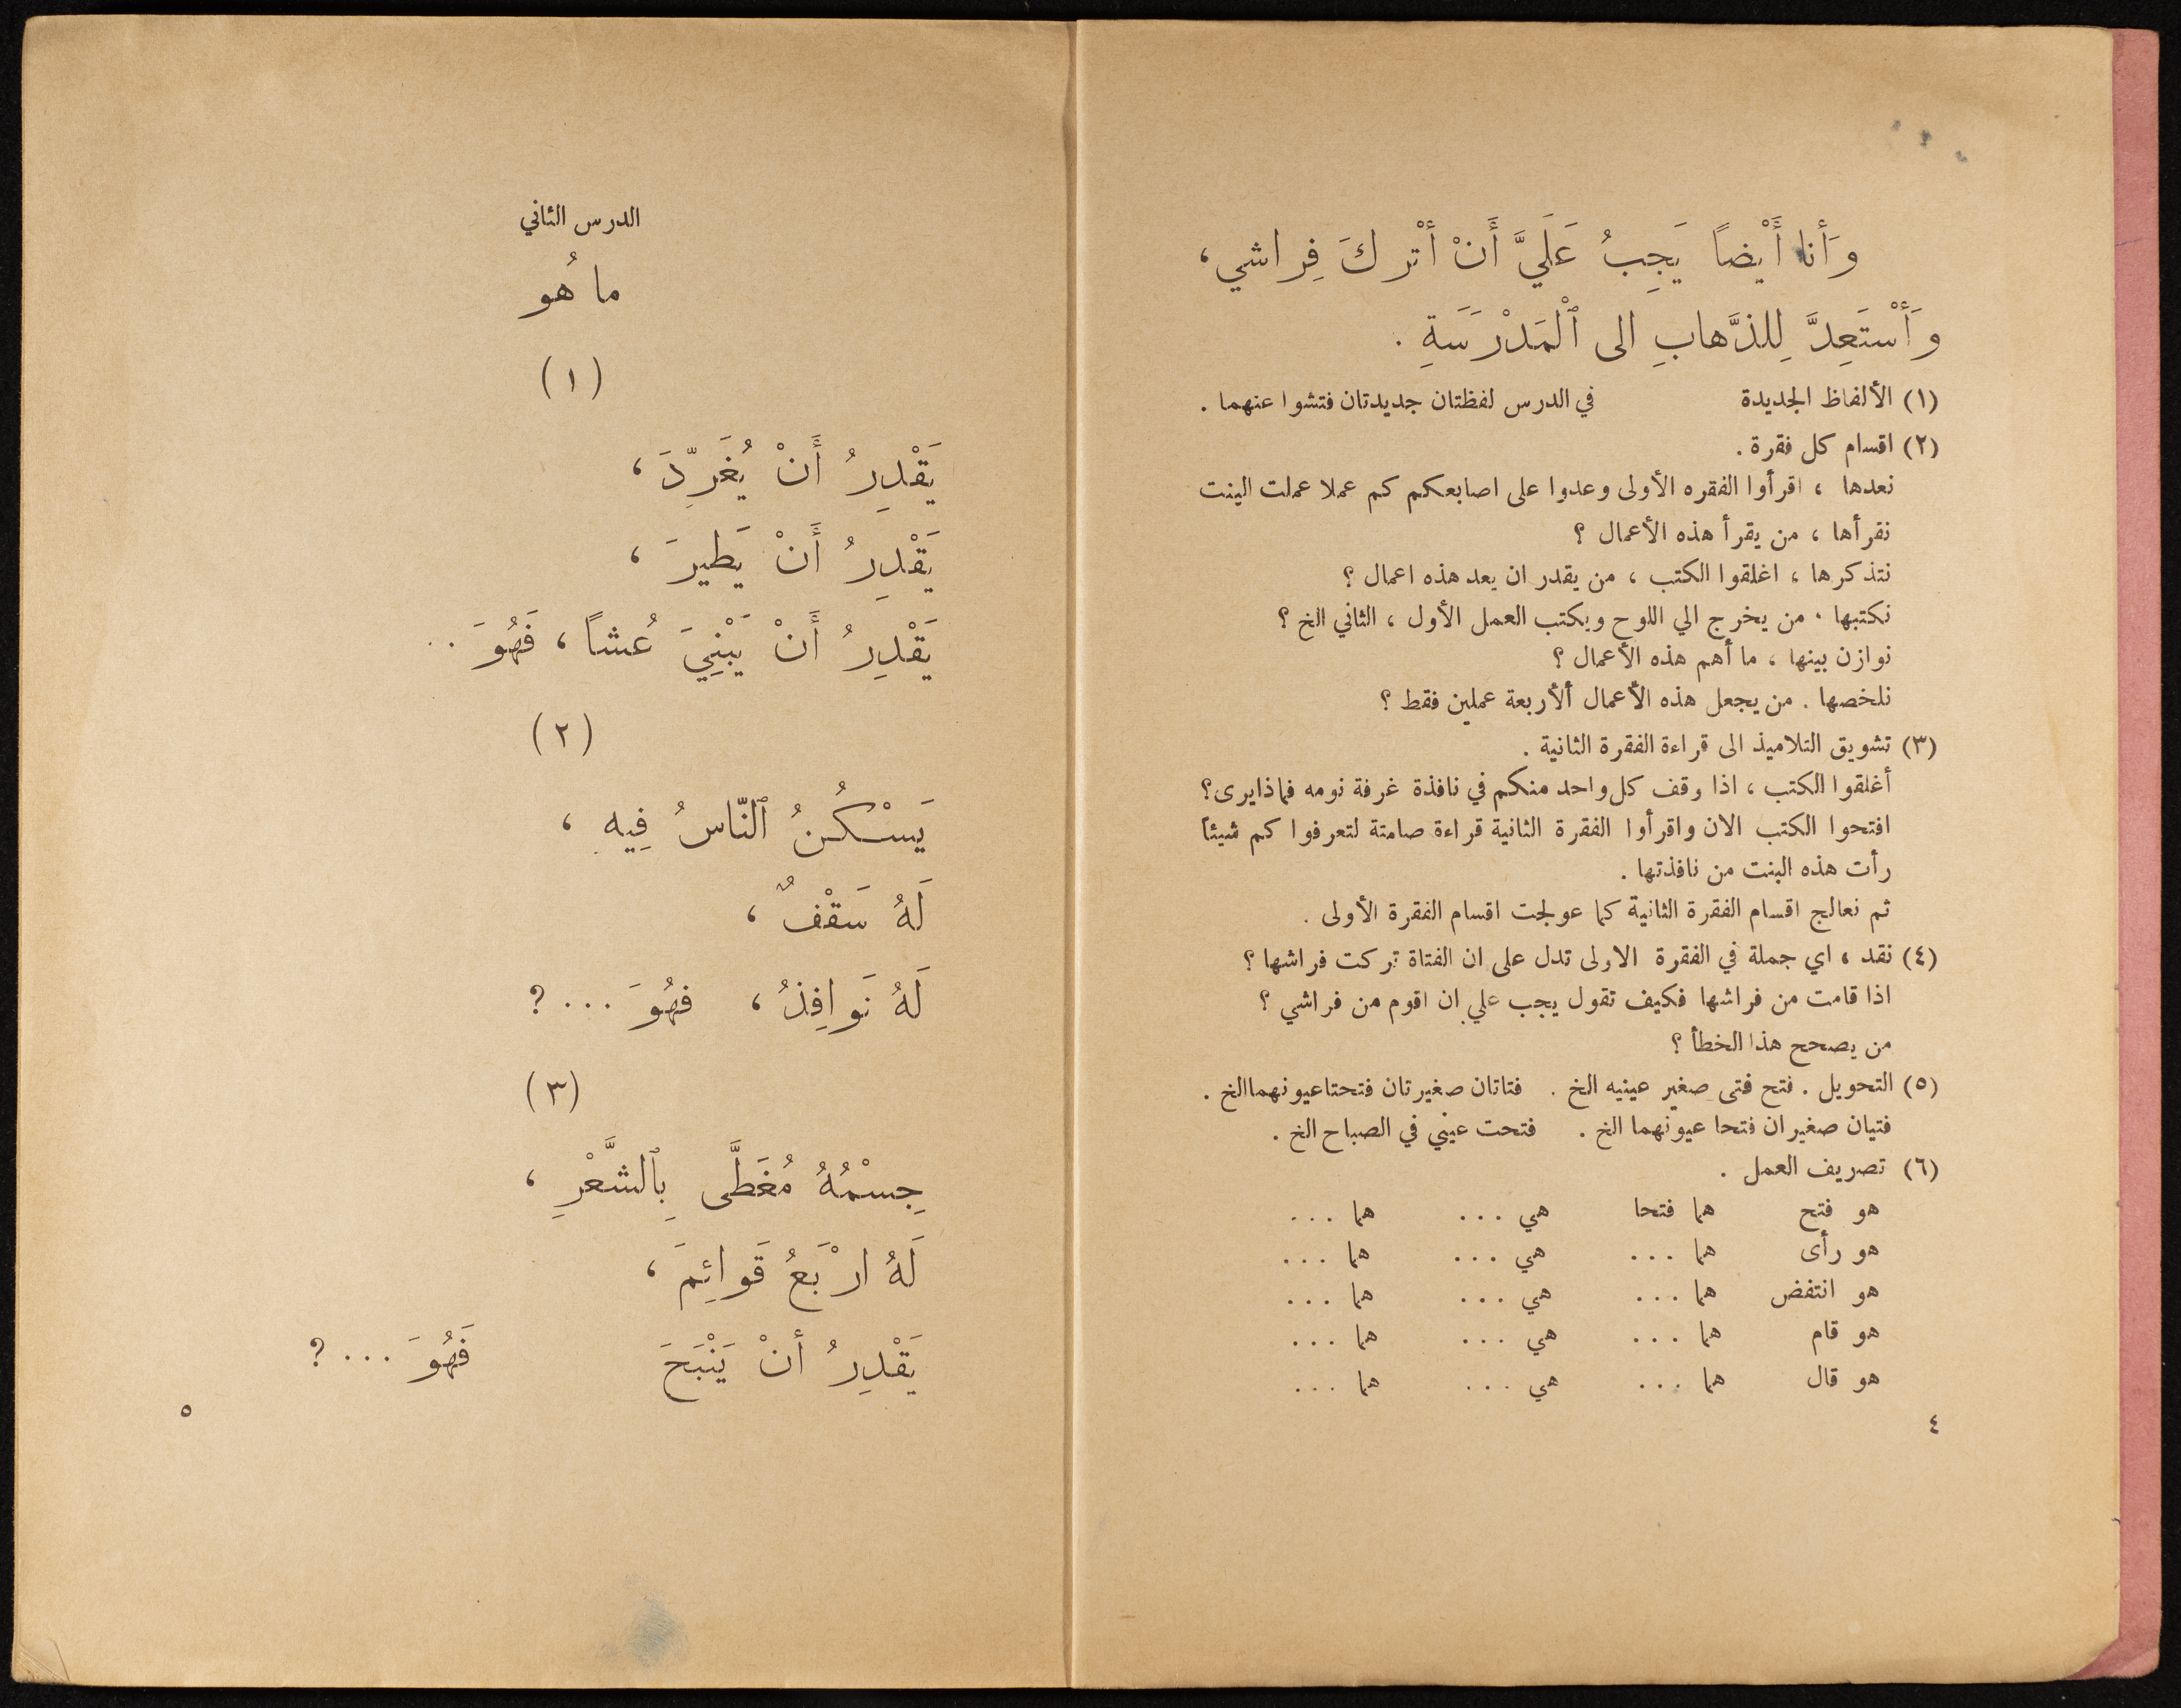 وَأَنا أَيْضاً يَجِبُ عَلَيَّ أَنْ أَتْركَ فِراشي،
وَأَسْتَعِدَّ لِلذَّهابِ الى ٱلْمَدْرَسَةِ .
(١) الألفاظ الجديدة في الدرس لفظتان جديدتان فتشوا عنهما .
(٢) اقسام كل فقرة .
نعدها ، اقرأوا الفقره الأولى وعدوا على اصابعكم كم عملا عملت البنت
نقرأها ، من يقرأ هذه الأعمال ؟
نتذكرها ، اغلقوا الكتب ، من يقدر ان يعد هذه اعمال ؟
نكتبها . من يخرج الي اللوح ويكتب العمل الأول ، الثاني الخ ؟
نوازن بينها ، ما أهم هذه الأعمال ؟
نلخصها . من يجعل هذه الأعمال ألأربعة عملين فقط ؟
(٣) تشويق التلاميذ الى قراءة الفقرة الثانية .
أغلقوا الكتب ، اذا وقف كل واحد منكم في نافذة غرفة نومه فماذا يرى ؟
افتحوا الكتب الان واقرأوا الفقرة الثانية قراءة صامتة لتعرفوا كم شيئاً
رأت هذه البنت من نافذتها .
ثم نعالج اقسام الفقرة الثانية كما عولجت اقسام الفقرة الأولى .
(٤) نقد ، اي جملة في الفقرة الاولى تدل على ان الفتاة تركت فراشها ؟
اذا قامت من فراشها فكيف تقول يجب علي ان اقوم من فراشي ؟
من يصحح هذا الخطأ ؟
(٥) التحويل . فتح فتى صغير عينيه الخ . فتاتان صغيرتان فتحتا عيونهما الخ .
فتيان صغيران فتحا عيونهما الخ . فتحت عيني في الصباح الخ .
(٦) تصريف العمل .
هو فتح هما فتحا هي ... هما ...
هو رأى هما ... هي ... هما ...
هو انتفض هما ... هي ... هما ...
هو قام هما ... هي ... هما ...
هو قال هما ... هي ... هما ...
٤
الدرس الثاني
ما هُو
(١)
يَقْدِرُ أَنْ يُغَرِّدَ ،
يَقْدِرُ أَنْ يَطيرَ ،
يَقْدِرُ أَنْ يَبْنِيَ عُشاً ، فَهُوَ ..
(٢)
يَسْكُنُ ٱلنّاسُ فِيه ،
لَهُ سَقْفٌ ،
لَهُ نَوافِذُ ، فهُوَ ... ?
(٣)
جِسْمُهُ مُغَطَّى بِٱلشَّعْرِ ،
لَهُ ارْبَعُ قَوائِمَ ،
يَقْدِرُ أَنْ يَنْبَحَ فَهُوَ ... ?
٥